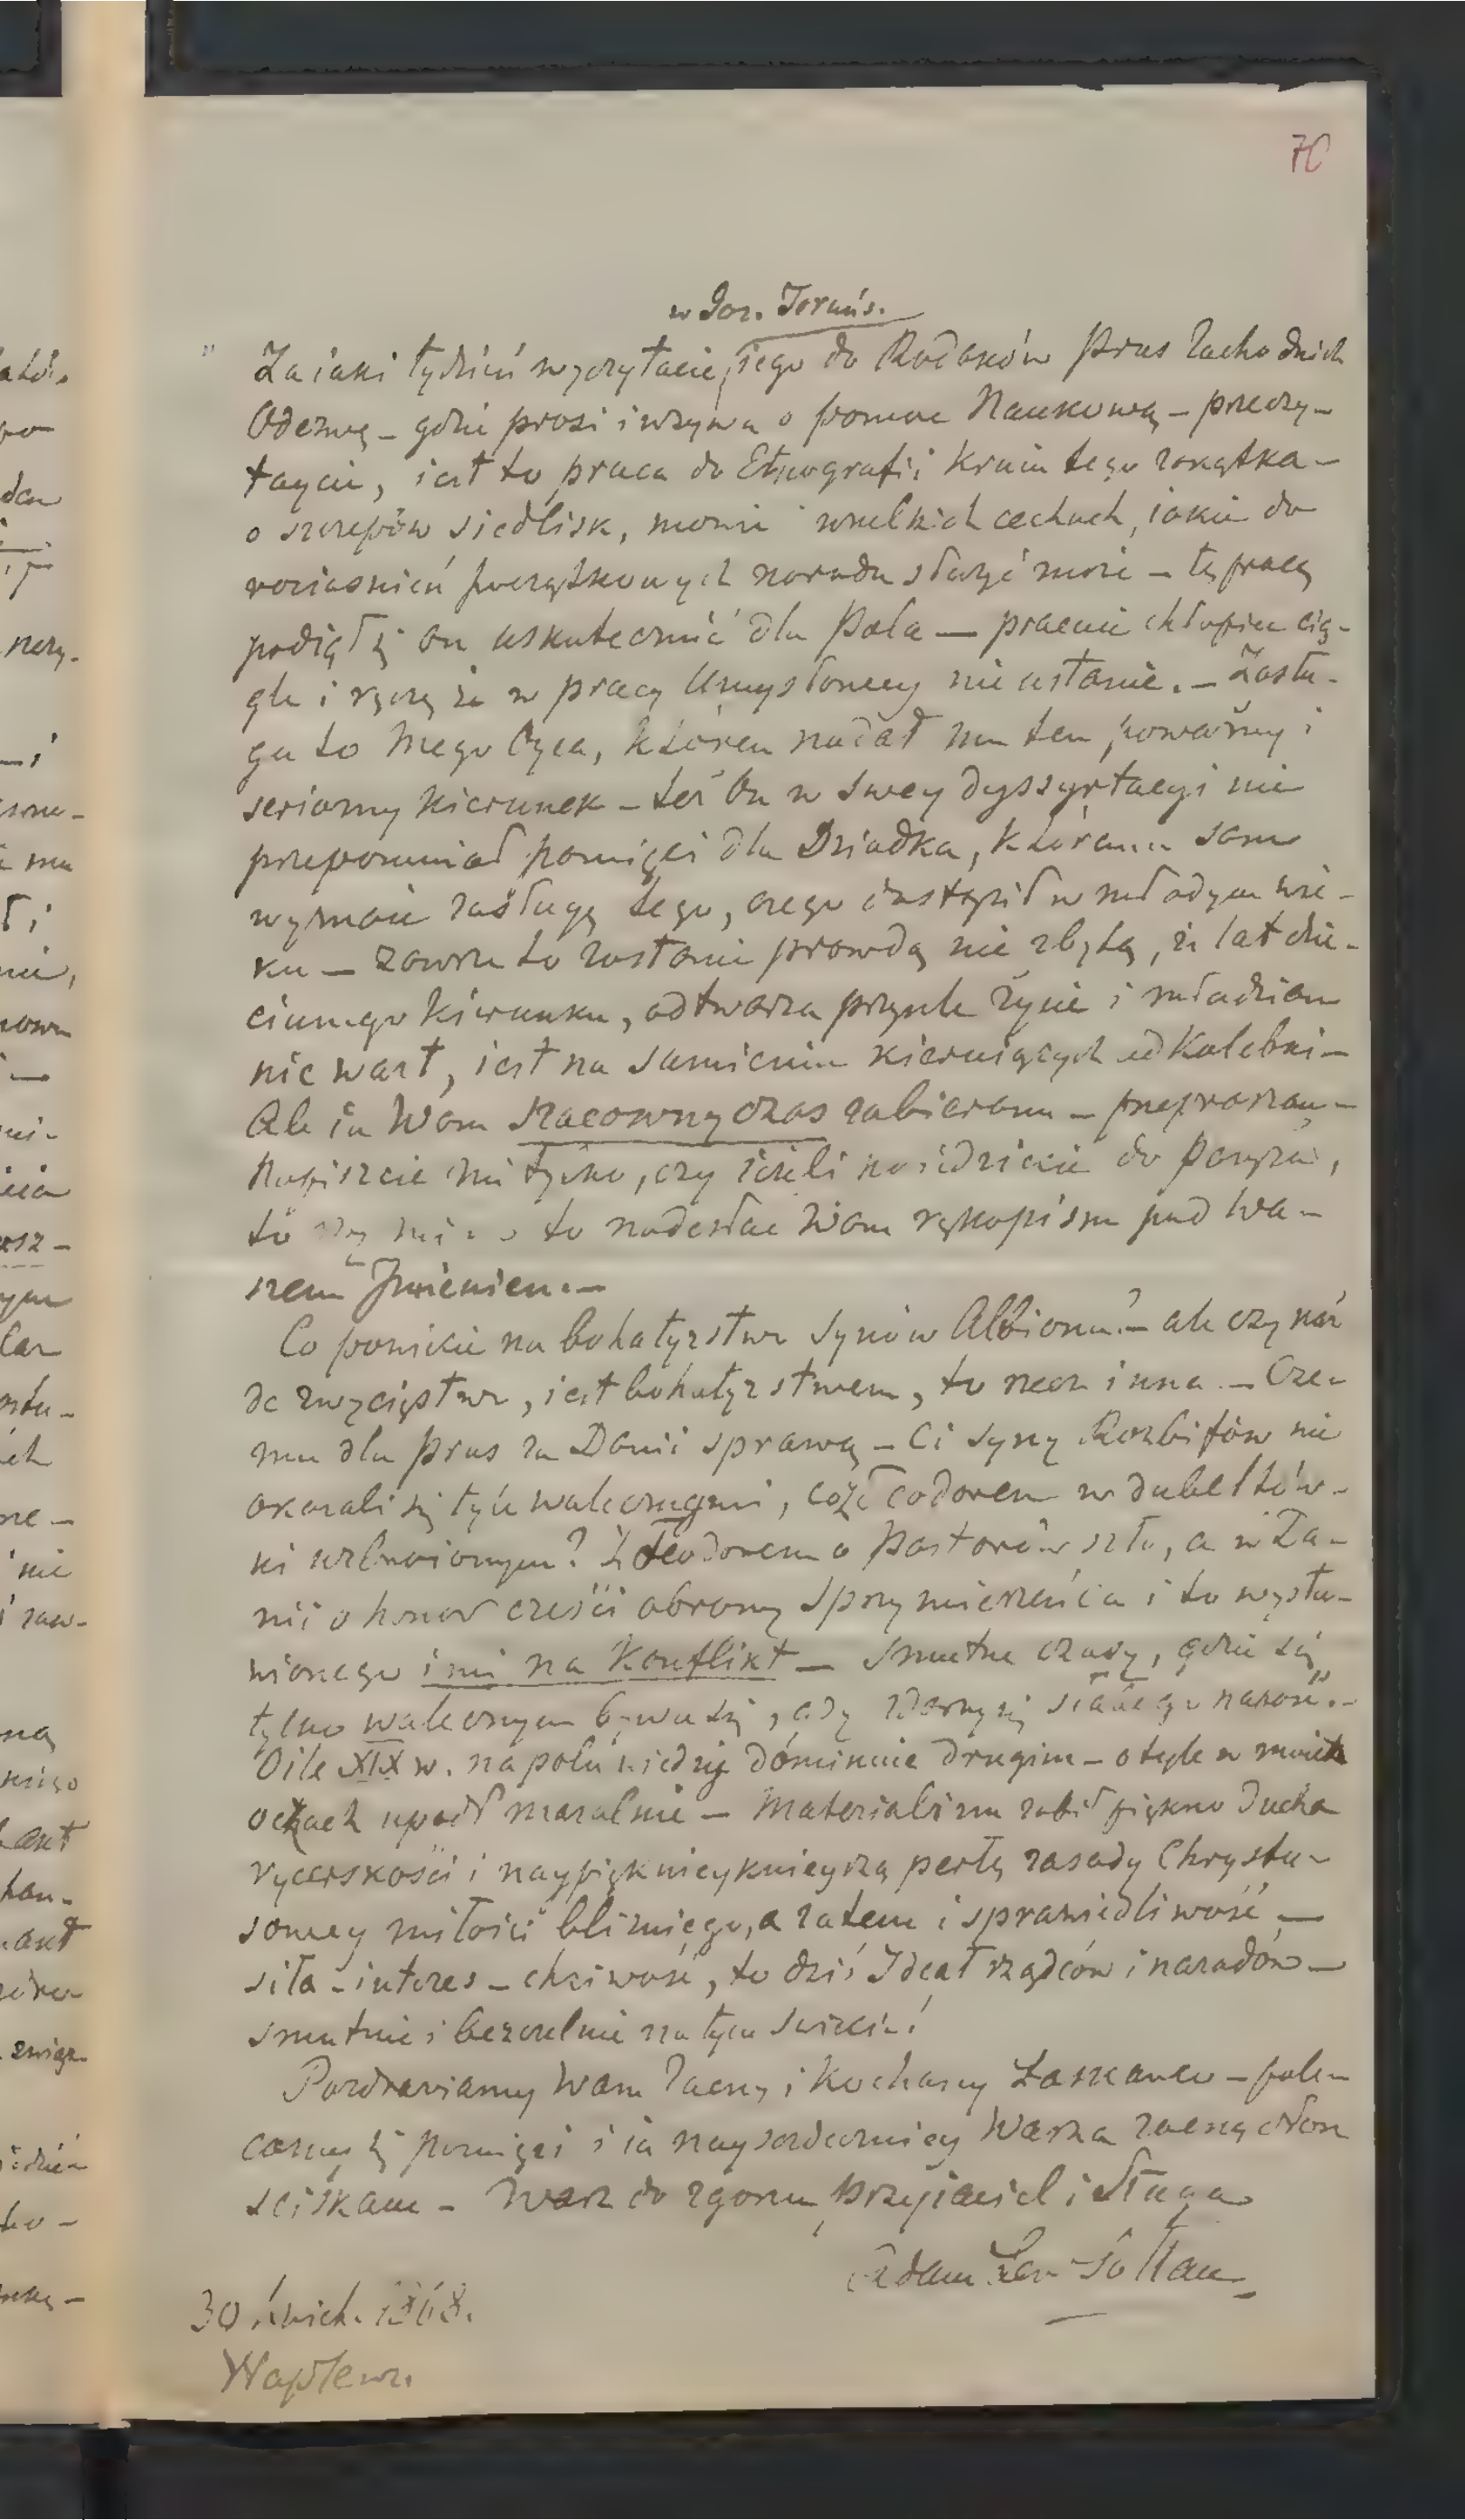 70
w Gaz. Toruńs.
Za iaki tydzień wyczytacie, iego do Rodaków Prus Zachodnich
Odezwę – gdzie prosi i wzywa o pomoc Naukową – przeczy-
taycie, iest to praca do Etnografii Kraiu tego zakątka –
o szczepów siedlisk, mowie wszelkich cechach, iakie do
roziasnień początkowych narodu służyć może – tę pracę
podiął się on uskutecznić dla Pola — pracuie chłopiec cią-
gle i ręczę że w pracy Umysłowey nie ustanie. – Zasłu-
ga to Mego Oyca, któren nadał mu ten poważny i
seriozny kierunek – też On w swey dyssyrtacyi nie
przepomniał pamięci dla Dziadka, któremu sam
wyznaie zasługę tego, czego dostąpił w młodym wie-
ku — zawsze to zostanie prawdą nie zbytą, że lat dzie-
cinnego kierunku, odtwarza przyszłe życie i młodzian
nic wart, iest na sumieniu kieruiących od Kolebki –
Ale ia Wam szacowny czas zabieram – przepraszam –
Napiszcie mi tylko, czy ieżeli nie idziecie do Paryża,
to to nadesłać Wam rękopism pod Wa-
szem Imieniem. –
Co powiecie na bohatyrstwo Synów Albionu? – ale czy nań
de zwycięstwo, iest bohatyrstwem, to rzecz inna. – Cze-
mu dla Prus za Danii sprawą – Ci syny Rozbifów nie
okazali się tyle walecznymi, cóż Teodorem w dubeltów-
ki uzbroionym? Z Teodorem o Pastorów szło, a w Da-
nii o honor cześci obrony Sprzymierzeńca i to wysta-
wionego imi na Konflikt — Smutne czasy, gdzie się
tylko walecznym bywa się, gdy słabego
Oile XIX w. na polu wiedzy dóminuie drugim – otyle w moich
oczach upadł moralnie – Materializm zabił piękno Ducha
rycerskości i naypięknieyknieyszą perłę zasady Chrystu-
sowey miłości bliźniego, a zatem i sprawiedliwość —
siła – interes – chciwość, to dziś Ideał rządców i narodów —
smutnie i bezczelnie na tym świecie!
Pozdrawiamy Wam Zacny i Kochany Łaskawco – pole-
camy się pamięci i ia nayserdeczniey Wasza zacną dłoń
sciskam – Wasz do zgonu przyiaciel i Sługa
Adam Lew Sołtan
30 1868.
Waplewo.